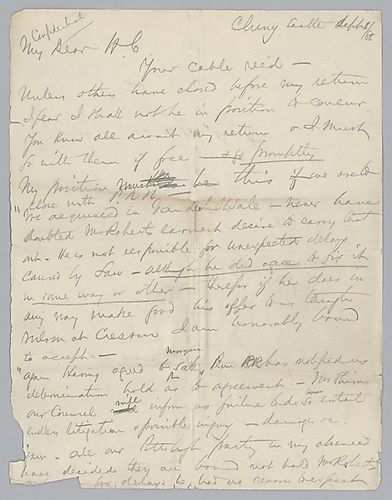 Confidential
Cluny Castle Sept 8/
My Dear H. C
Your cable recd —
Unless others have closed before my return
I fear I shall not be in position to concur.
You know all await my return & I must
go with them if free — & go promptly
My position be this if
close with
We acquiesced in Vanderbilt Sale — never have
doubted McRoberts earnest desire to carry that
out. he is not responsible for unexpected delays
caused by Law — although he did agree to fix it
in some way or other — therefor if he does in
any way make good his offer to us
at Cresson I am honorably bound
to accept —
Morgan
again Having agreed to Sale Penn RR has notified us
determination hold us to agreement —
our Council inform us failure to do so entail
endless litigation & possible injury — damages &c.
all our Pittsburgh party in my absence
have decided they are bound not hold McRoberts
for delays he had no reason expect